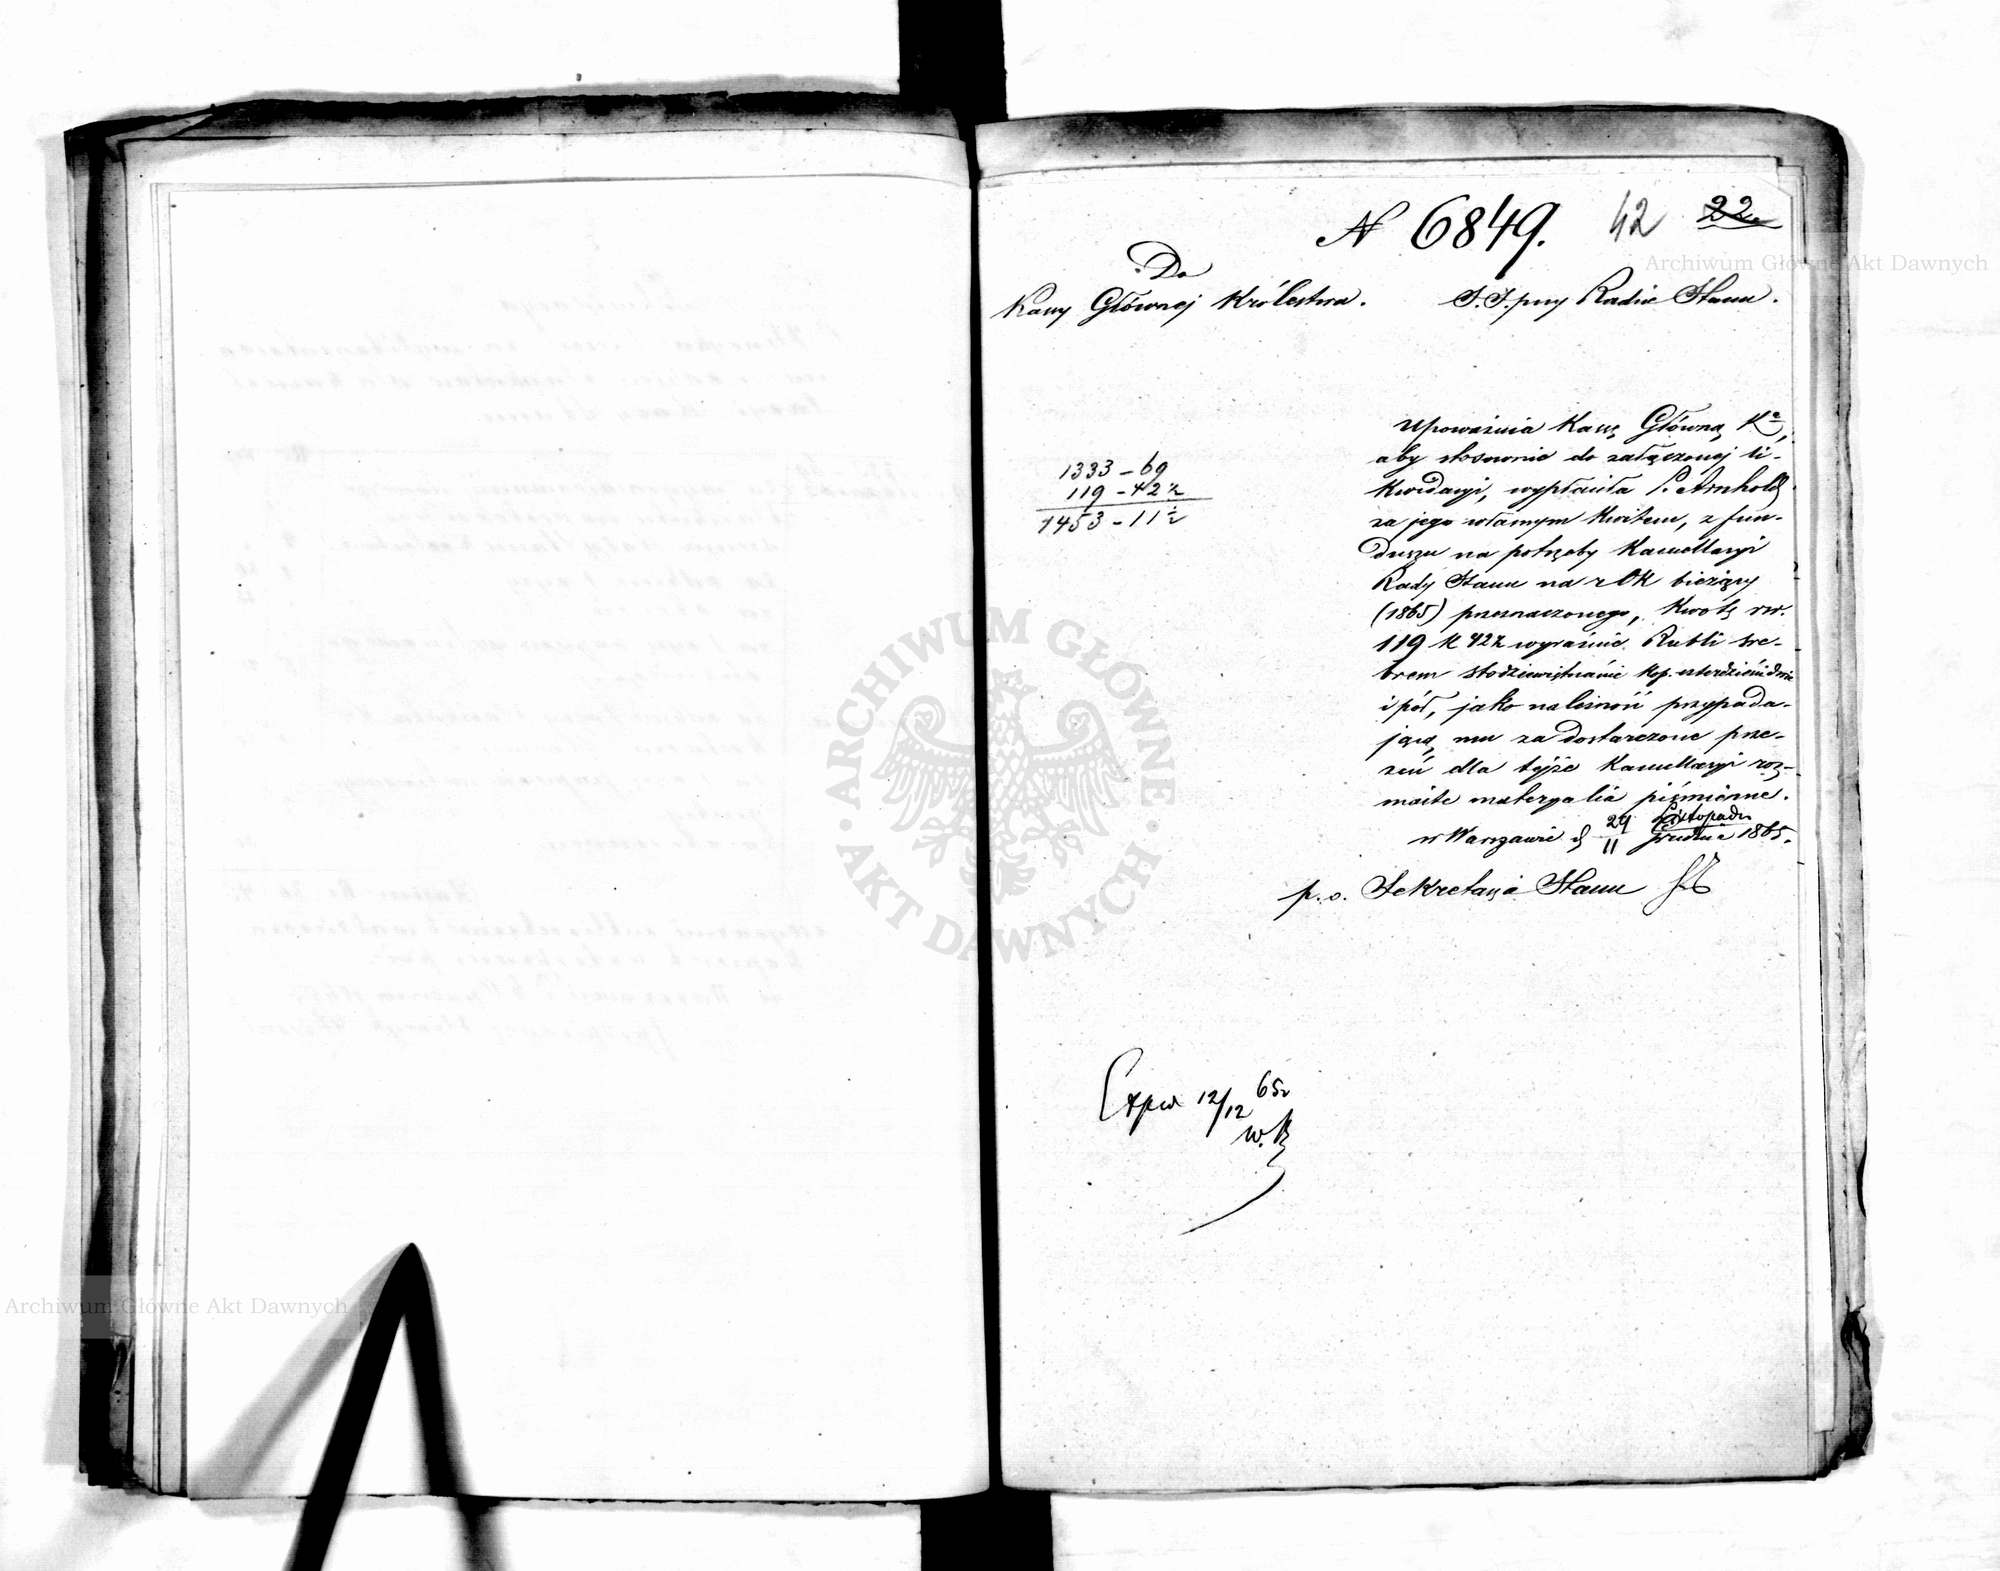 N 6849. 42 22
Do
Kassy Głównej Królestwa. S. S. przy Radzie Stanu.
Upoważnia Kassę Główną Kа,
aby stosownie do załączonej li-
kwidacyi, wypłaciła P. Arnhold
za jego własnym kwitem, z fun-
duszu na potrzeby Kancellaryi
Rady Stanu na rok bieżący
(1865) przeznaczonego, kwotę rsr.
119 k 42½ wyraźnie Rubli sre-
brem stodziewiętnaście kop. czterdzieści dwie
i pół, jako należność przypada-
jącą mu za dostarczone prze-
zeń dla tejże Kancellaryi roz-
maite materyalia piśmienne.
w Warszawie d 29/11 Listopada/Grudnia 1865.
p. o. Sekretarza Stanu
1333 - 69
119 - 42½
1453 - 11½
Exped 12/12 65r
W. R
ARCHIWUM GŁÓWNE
AKT DAWNYCH
Archiwum Główne Akt Dawnych
Archiwum Główne Akt Dawnych